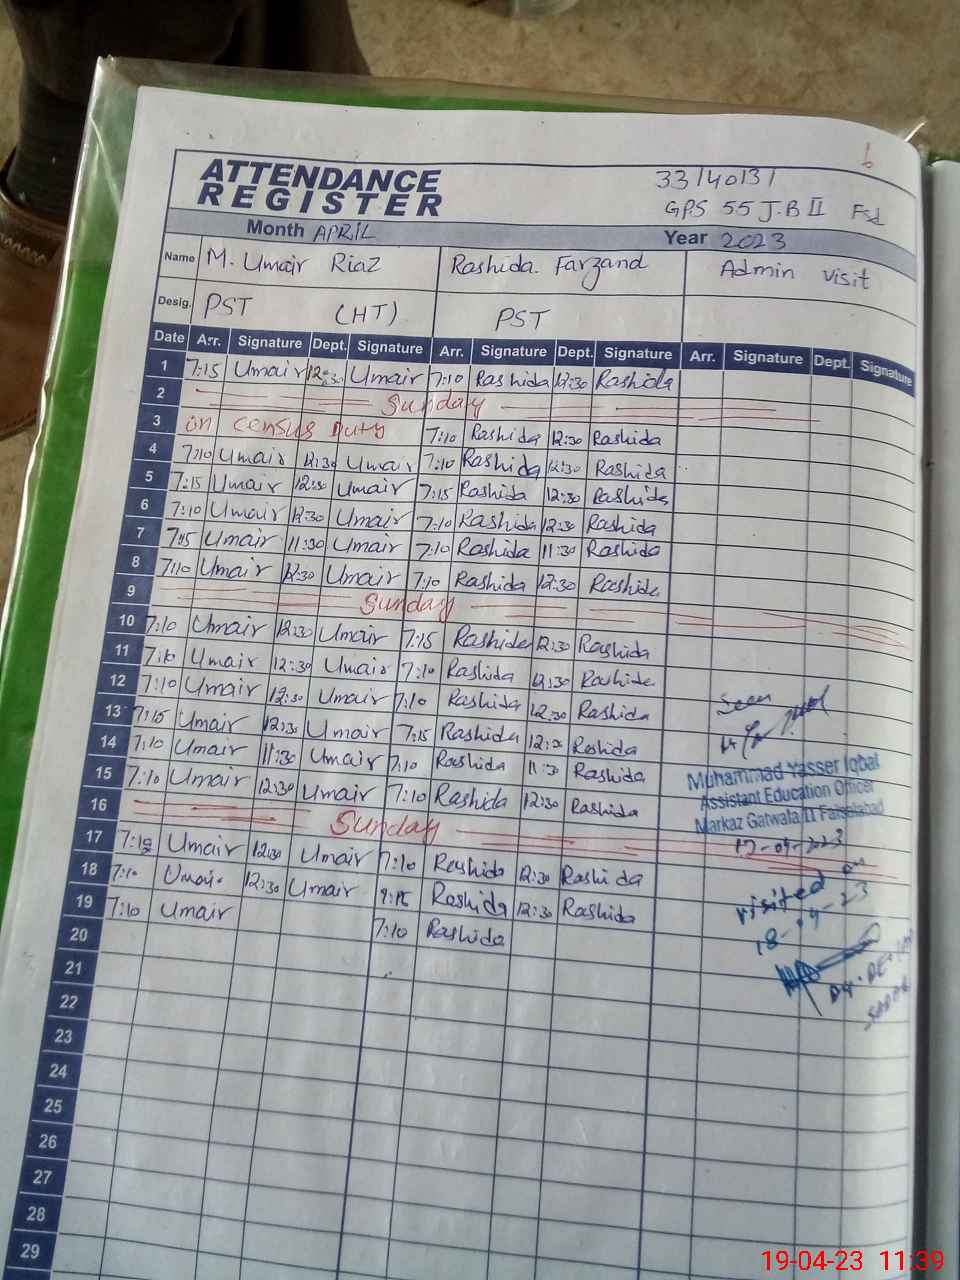 6
ATTENDANCE
REGISTER
33140131
GPS 55 J.B II Fsd
Month APRIL Year 2023
Name M. Umair Riaz Rashida Farzand Admin visit
Desig. PST (HT) PST
Date Arr. Signature Dept. Signature Arr. Signature Dept. Signature Arr. Signature Dept. Signature
1 7:15 Umair 12:30 Umair 7:10 Rashida 12:30 Rashida
2 Sunday
3 on census Duty 7:10 Rashida 12:30 Rashida
4 7:10 Umair 12:30 Umair 7:10 Rashida 12:30 Rashida
5 7:15 Umair 12:30 Umair 7:15 Rashida 12:30 Rashida
6 7:10 Umair 12:30 Umair 7:10 Rashida 12:30 Rashida
7 7:15 Umair 11:30 Umair 7:10 Rashida 11:30 Rashida
8 7:10 Umair 12:30 Umair 7:10 Rashida 12:30 Rashida
9 Sunday
10 7:10 Umair 12:30 Umair 7:15 Rashida 12:30 Rashida
11 7:10 Umair 12:30 Umair 7:10 Rashida 12:30 Rashida
12 7:10 Umair 12:30 Umair 7:10 Rashida 12:30 Rashida
13 7:15 Umair 12:30 Umair 7:15 Rashida 12:30 Rashida
14 7:10 Umair 11:30 Umair 7:10 Rashida 11:30 Rashida
15 7:10 Umair 12:30 Umair 7:10 Rashida 12:30 Rashida
16 Sunday
17 7:10 Umair 12:30 Umair 7:10 Rashida 12:30 Rashida
18 7:10 Umair 12:30 Umair Rashida 12:30 Rashida
19 7:10 Umair 7:10 Rashida
20
21
22
23
24
25
26
27
28
29
Seen
Muhammad Yasser Iqbal
Assistant Education Officer
Markaz Gatwala II Faisalabad
17-04-2023
visited on
18-04-23
19-04-23 11:39